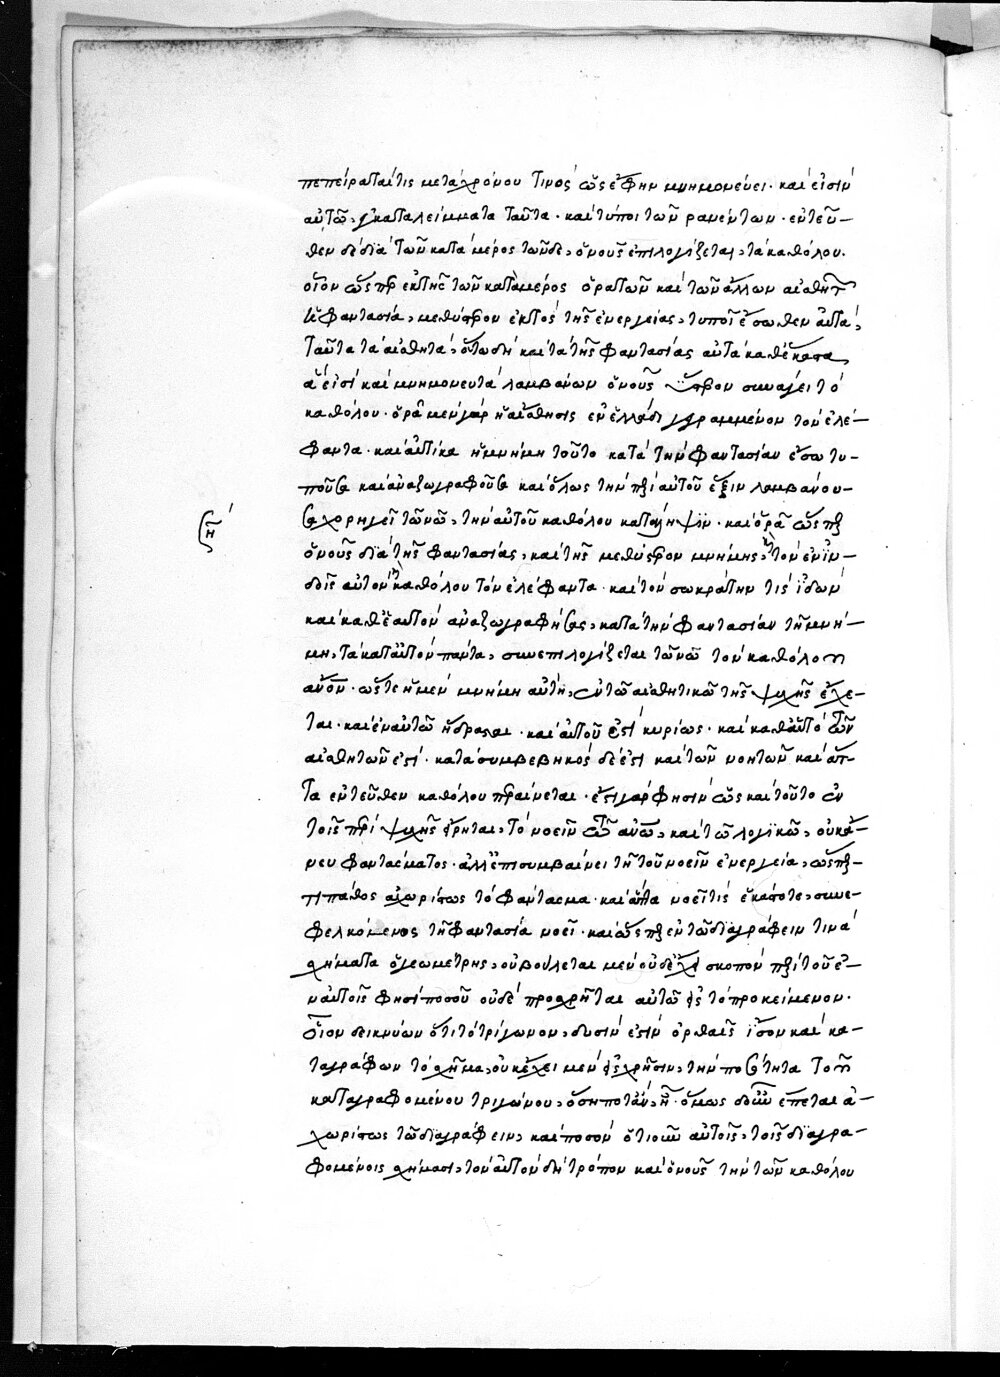 πεπείραται τις μετὰ χρόνου τινὸς ὡς ἔφην μνημονεύει· καὶ εἰσὶν
αὐτῶ, ἐγκαταλείμματα ταῦτα· καὶ τύποι τῶν φανέντων· ἐντεῦ-
θεν δὲ διὰ τῶν κατὰ μέρος τῶνδε, ὁ νοῦς ἐπιλογίζεται, τὰ καθόλου.
οἷον ὥσπερ ἐκτὸς τῶν κατὰ μέρος ὁρατῶν καὶ τῶν ἄλλων αἰσθητῶν
ἡ φαντασία, μεθύστερον ἐκτὸς τῆς ἐνεργείας, τυποῖ ἔσωθεν αὐτὰ,
ταῦτα τὰ αἰσθητὰ, οὕτω δὴ καὶ τὰ τῆς φαντασίας αὐτὰ καθέκαστα
ἅ εἰσι καὶ μνημονευτὰ λαμβάνων ὁ νοῦς ὕστερον συνάγει τὸ
καθόλου· ὁρᾶ μὲν γὰρ ἡ αἴσθησις ἐν ἑλλάδι γραμμένον τὸν ἐλέ-
φαντα· καὶ αὐτίκα ἡ μνήμη τοῦτο κατὰ τὴν φαντασίαν ἔσω τυ-
ποῦσα καὶ ἀναζωγραφοῦσα καὶ ὅλως τὴν περὶ αὐτοῦ ἕξιν λαμβάνου-
σα χορηγεῖ τῶ νῶ, τὴν αὐτοῦ καθόλου κατάληψιν· καὶ ὁρᾶ ὥσπερ
ὁ νοῦς διὰ τῆς φαντασίας, καὶ τῆς μεθύστερον μνήμης, τὸν ἐν ἰν-
δοῖς αὐτὸν καθόλου τὸν ἐλέφαντα· καὶ τὸν σωκράτην τις ἰδὼν
καὶ καθεαυτὸν ἀναζωγραφήσας, κατὰ τὴν φαντασίαν τῆ μνή-
μη, τὰ κατ αὐτὸν πάντα, συνεπιλογίζεται τῶ νῶ τὸν καθόλου
ἄνον· ὥστε ἡ μὲν μνήμη αὐτὴ, ἐν τῶ αἰσθητικῶ τῆς ψυχῆς ἔχε-
ται· καὶ ἐν αὐτῶ ἥδρασται· καὶ αὐτοῦ ἐστὶ κυρίως· καὶ καθαυτὸ τῶν
αἰσθητῶν ἐστί· κατὰ συμβεβηκὸς δέ ἐστι καὶ τῶν νοητῶν καὶ ἅπ-
τα ἐντεῦθεν καθόλου περαίνεται· ἔστι γὰρ φησὶν ὡς καὶ τοῦτο ἐν
τοῖς περὶ ψυχῆς εἴρηται, τὸ νοεῖν τῶ ἀνω, καὶ τῶ λογικῶ, οὐκ ἄ-
νευ φαντάσματος· ἀλλ ἐπισυμβαίνει τῆ τοῦ νοεῖν ἐνεργεία, ὥσπερ
τι πάθος ἀχωρίστως τὸ φάντασμα· καὶ ἅττα νοεῖ τις ἑκάστοτε, συνε-
φελκόμενος τῆ φαντασία νοεῖ· καὶ ὥσπερ ἐν τῶ διαγράφειν τινὰ
σχήματα ὁ γεωμέτρης, οὐ βούλεται μὲν οὐδ ἔχει σκοπὸν περὶ τοῦ ἐ-
ν αὐτοῖς φησὶ ποσοῦ οὐδὲ προσχρῆται αὐτῶ εἰς τὸ προκείμενον·
οἷον δεικνύων ὅτι τὸ τρίγωνον, δυσίν ἐστιν ὀρθαῖς ἴσον καὶ κα-
ταγράφων τὸ σχῆμα, οὐκ ἔχει μὲν εἰς χρῆσιν, τὴν ποσότητα τοῦ
καταγραφομένου τριγώνου, ὅση ποτ ἂν, ἦ· ὅμως δ οὖν ἕπεται ἀ-
χωρίστως τῶ διαγράφειν, καὶ ποσὸν ὁτιοῦν αὐτοῖς, τοῖς διαγρα-
φομένοις σχήμασι, τὸν αὐτὸν δὴ τρόπον καὶ ὁ νοῦς τὴν τῶν καθόλου